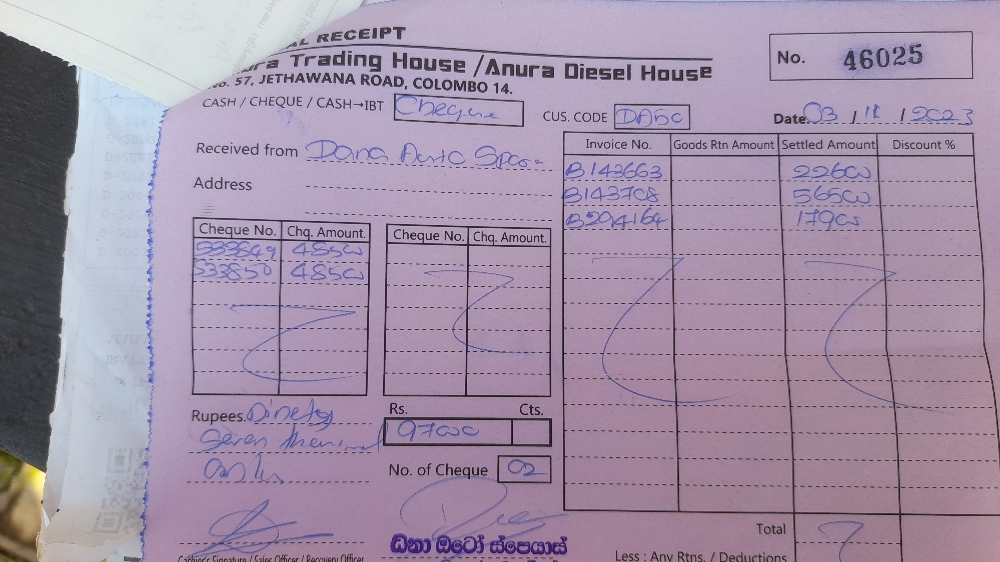 AL RECEIPT
ura Trading House / Anura Diesel House
No. 57, JETHAWANA ROAD, COLOMBO 14.
No. 46025
CASH / CHEQUE / CASH→IBT Cheque
CUS. CODE DA50
Date 03 / 11 / 2023
Received from Dana Auto Spare
Address
Invoice No. Goods Rtn Amount Settled Amount Discount %
B143663 22600
B143708 56500
B294164 17900
Cheque No. Chq. Amount. Cheque No. Chq. Amount.
533849 48500
533850 48500
Rupees. Ninety
Seven thousand
only
Rs. Cts.
97000
No. of Cheque 02
Total
Less : Any Rtns. / Deductions
ධනා ඔටෝ ස්පෙයාස්
Cashier's Signature / Sales Officer / Recovery Officer